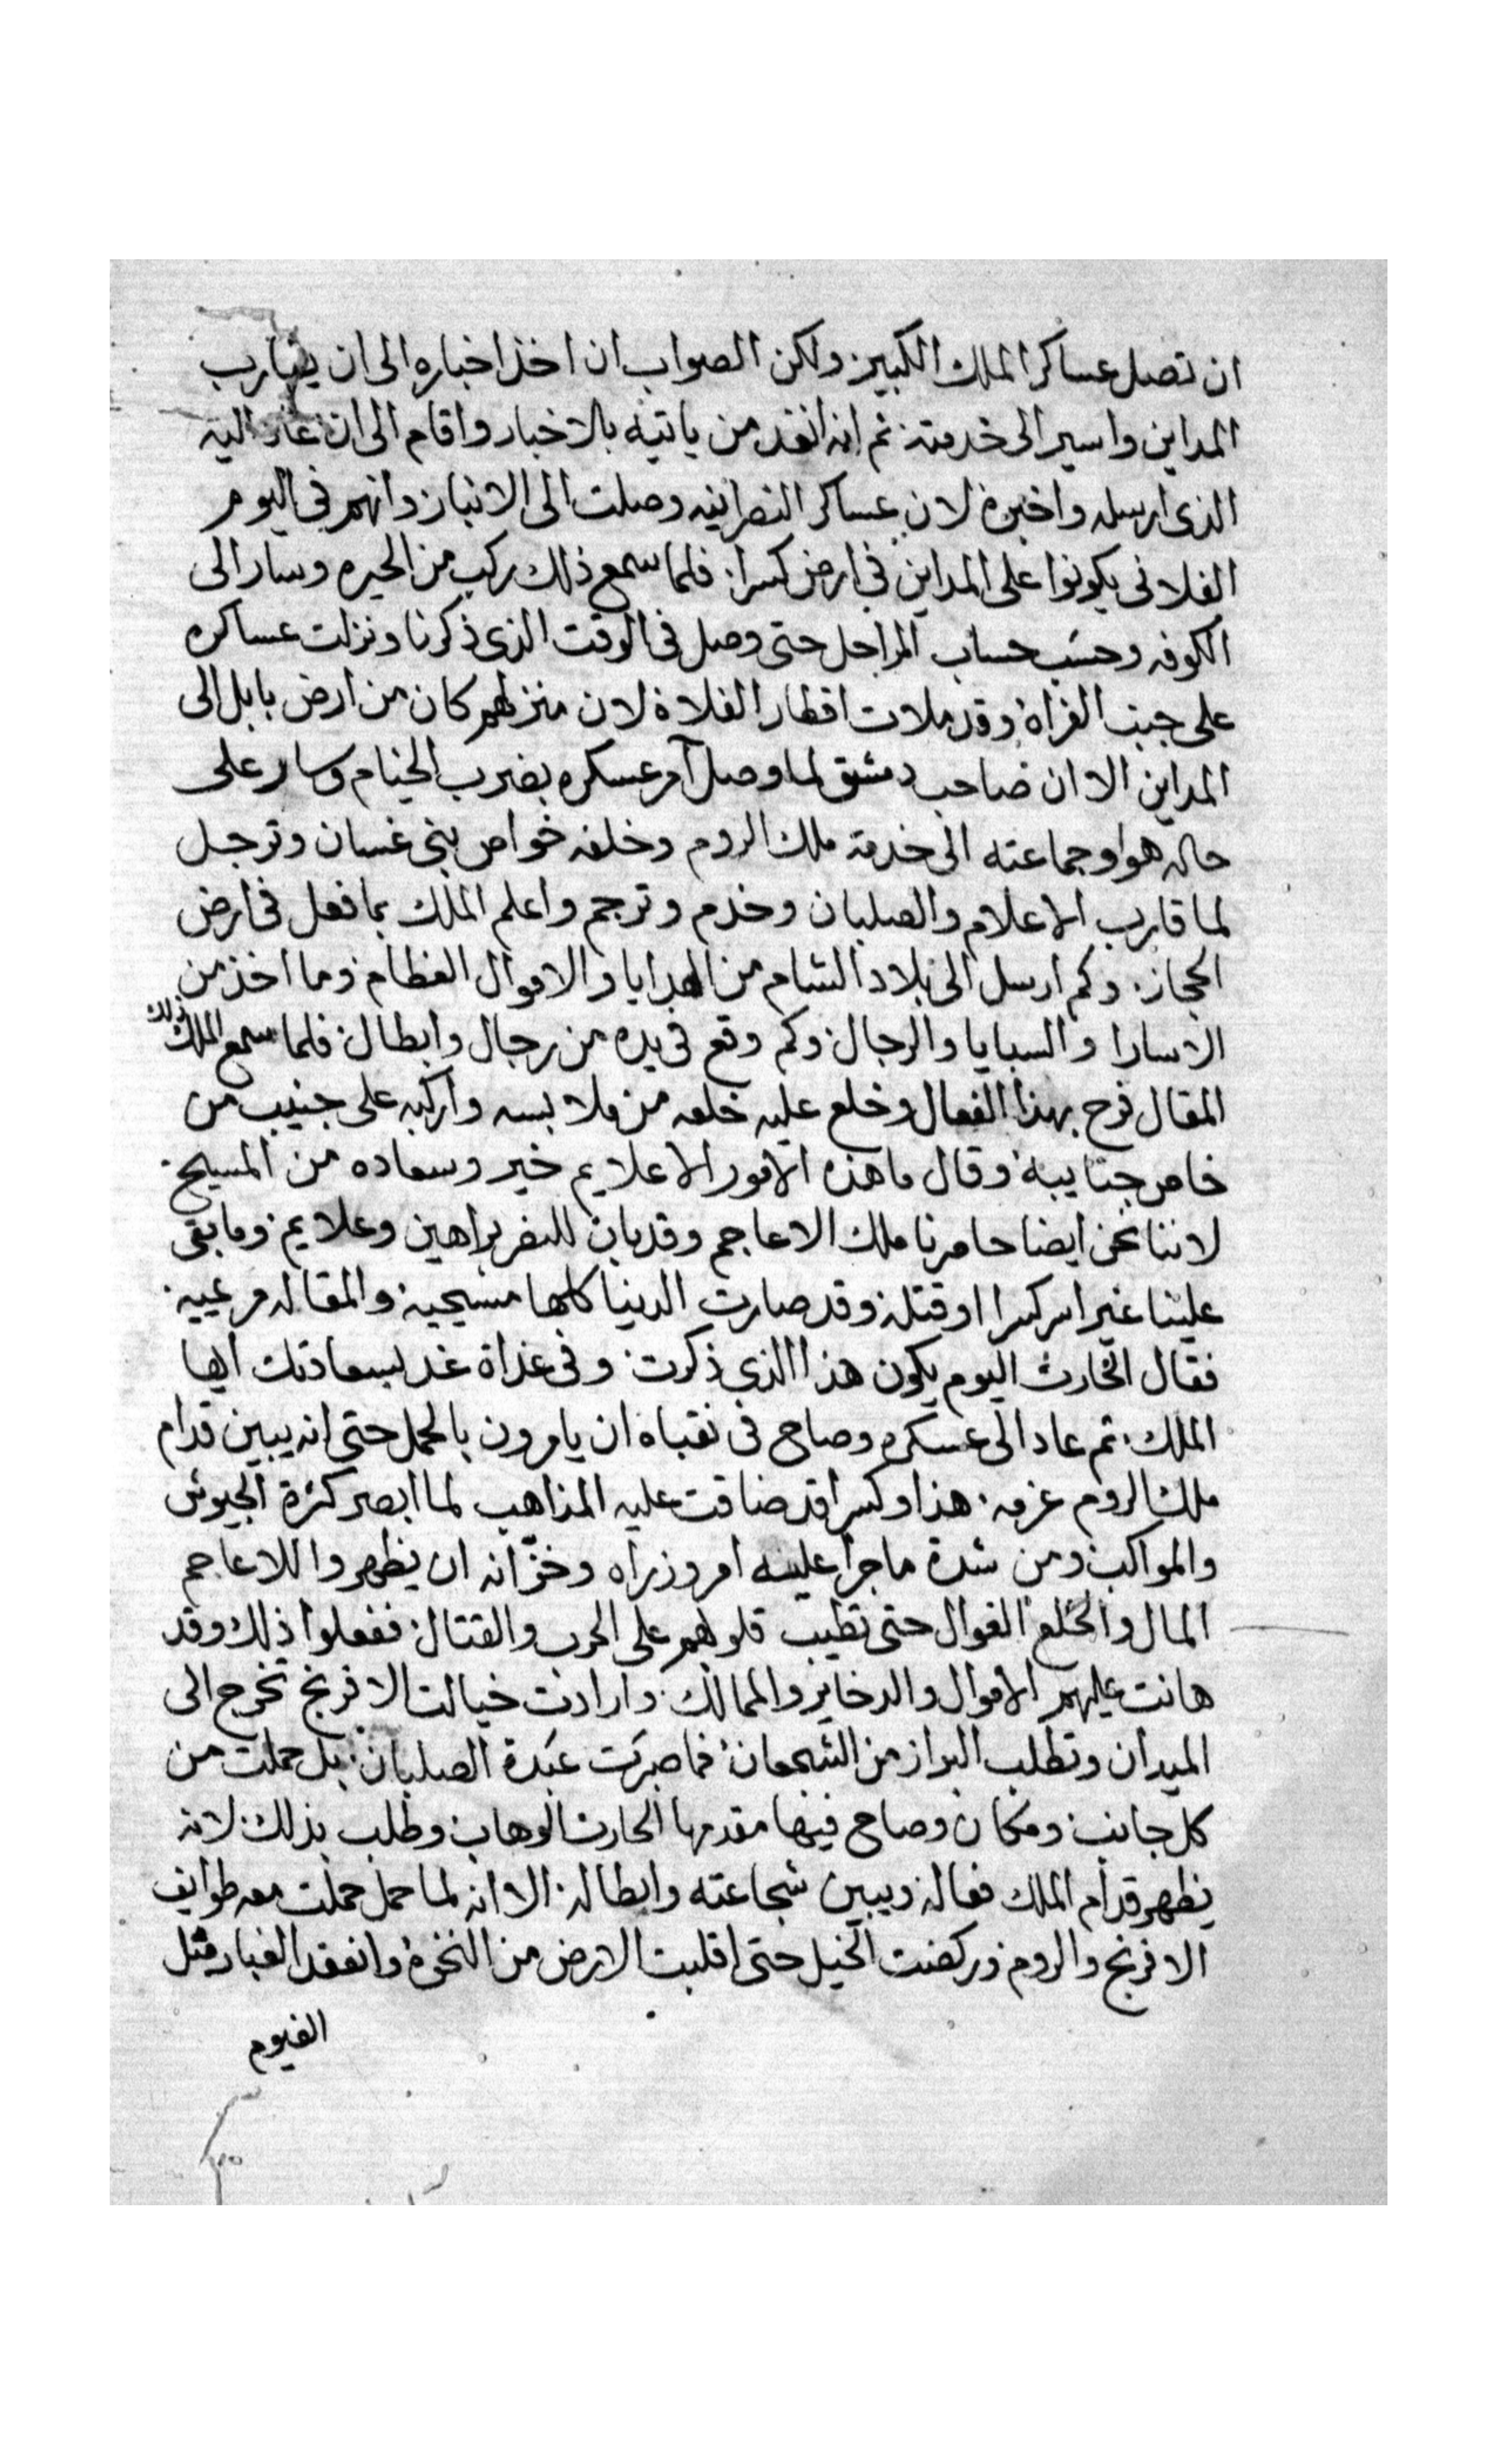 ان تصل عساكر الملك الكبير ولكن الصواب ان اخذ اخباره الى ان يقارب
المداين واسير الى خدمته ثم انه انفد من ياتيه بالاخبار واقام الى ان عاد اليه
الذى ارسله واخبره لان عساكر النصرانيه وصلت الى الانبار وانهم فى اليوم
الفلانى يكونوا على المداين فى ارض كسرا فلما سمع ذلك ركب من الحيره وسار الى
الكوفه وحسَب حساب المراحل حتى وصل فى الوقت الذى ذكرنا ونزلت عساكره
على جنب الفراة وقد ملات اقطار الفلاة لان منزلهم كان من ارض بابل الى
المداين الا ان صاحب دمشق لما وصل آمر عسكره بضرب الخيام وسار على
حاله هوا وجماعته الى خدمة ملك الروم وخلفه خواص بنى غسان وترجل
لما قارب الاعلام والصلبان وخدم وترجم واعلم الملك بما فعل فى ارض
الحجاز. وكم ارسل الى بلاد الشام من الهدايا والاموال العظام وما اخذ من
الاسارا والسبايا والرجال وكم وقع فى يده من رجال وابطال فلما سمع الملك ذلك
المقال فرح بهذا الفعال وخلع عليه خلعه من ملابسه واركبه على جنيب من
خاص جنايبه وقال ما هذه الامور الا علايم خير وسعاده من المسيح
لاننا نحن ايضا حامرنا ملك الاعاجم وقد بان للنصر براهين وعلايم وما بقى
علينا غير اسر كسرا او قتله وقد صارت الدنيا كلها مسيحيه والمقاله مرعيه
فقال الحارث اليوم يكون هذا الذى ذكرت وفى غداة غد بسعادتك ايها
الملك ثم عاد الى عسكره وصاح فى نقباه ان يامرون بالحمل حتى انه يبين قدام
ملك الروم عزمه هذا وكسرا قد ضاقت عليه المذاهب لما ابصر كثرة الجيوش
والمواكب ومن شدة ما جرا عليه امر وزراه وخزّانه ان يظهروا للاعاجم
المال والخلع الغوال حتى تطيب قلوبهم على الحرب والقتال ففعلوا ذلك وقد
هانت عليهم الاموال والدخاير والممالك وارادت خيالت الافرنج تخرج الى
الميدان وتطلب البراز من الشجعان فما صبرَت عَبَدة الصلبان بل حملت من
كل جانب ومكان وصاح فيها مقدمها الحارث الوهاب وطلب بذلك لانه
يظهر قدام الملك فعاله ويبين شجاعته وابطاله الا انه لما حمل حملت معه طوايف
الافرنج والروم وركضت الخيل حتى اقلبت الارض من النخره وانعقد الغبار مثل
الغيوم